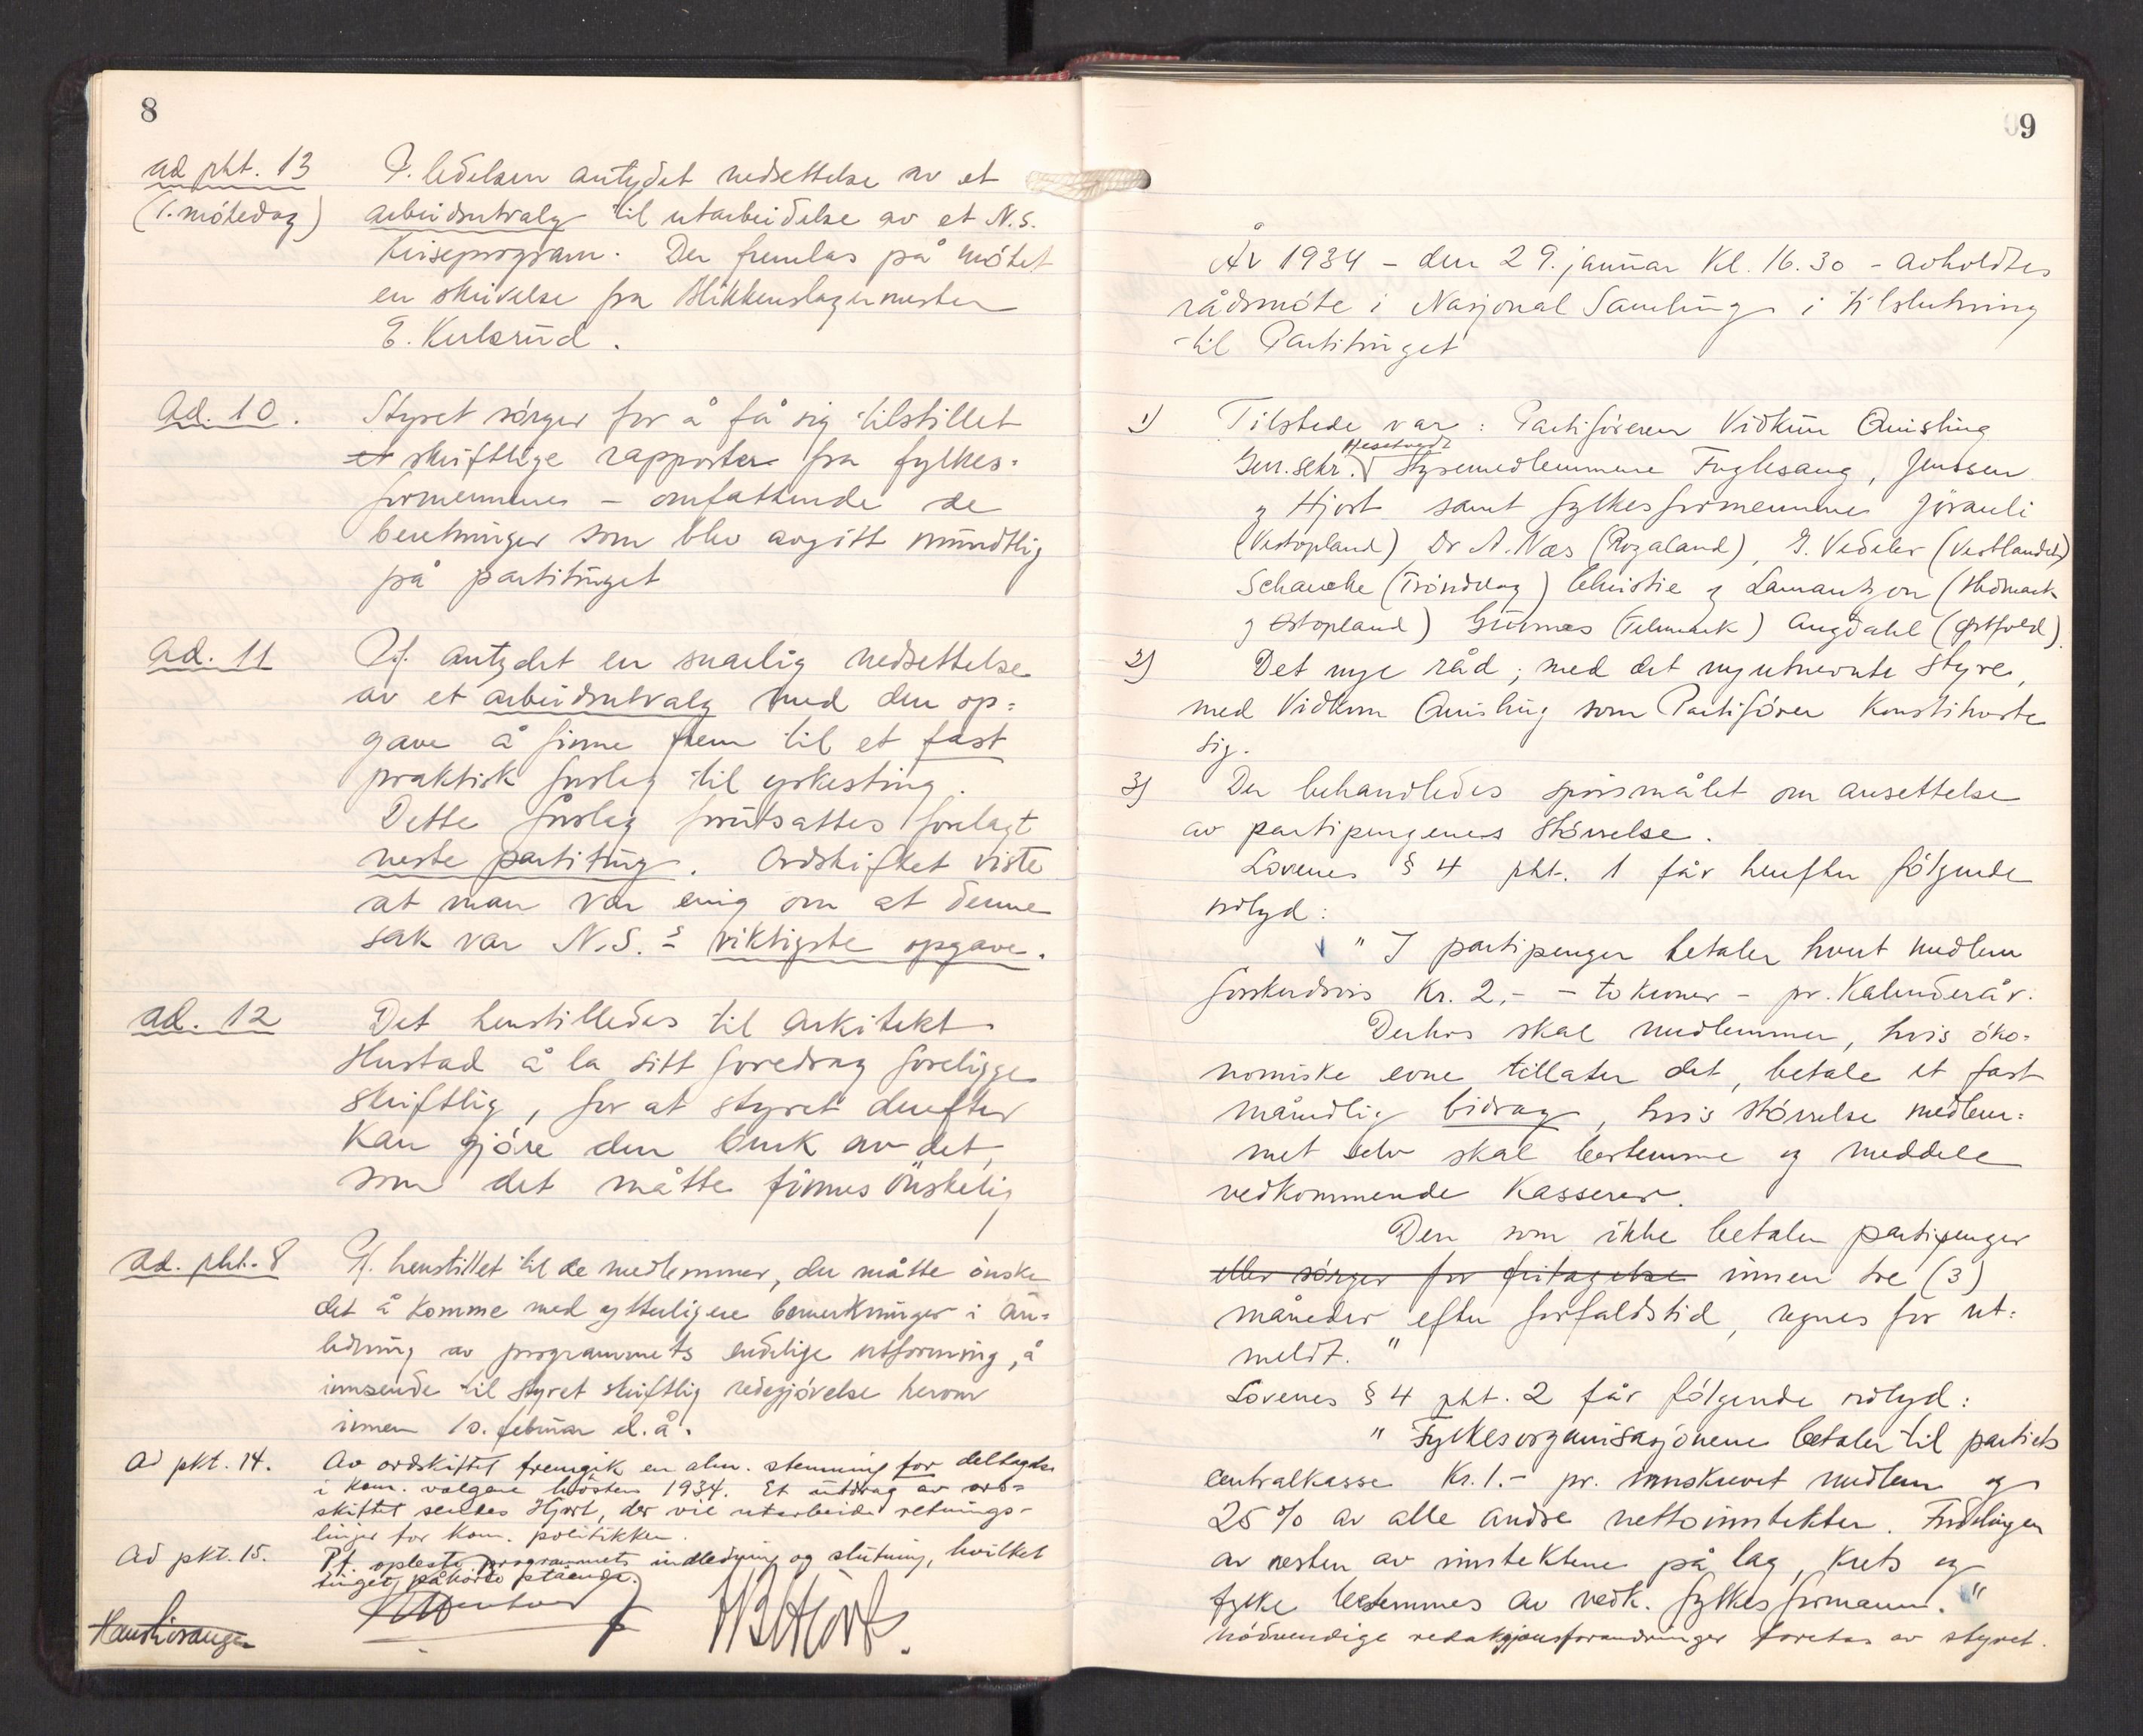 8
ad pkt. 13 P. ledelsen antydet nedsettelse av et
(1. mötedag) arbeidsutvalg til utarbeidelse av et N.S.
Kriseprogram. Der fremlas på mötet
en skrivelse fra Blikkenslagermester
E. Kulsrud.
Ad. 10. Styret sörger for å få sig tilstillet
et skriftlige rapporter fra fylkes-
formennene – omfattende de
beretninger som blev avgitt mundtlig
på partitinget
Ad. 11 Pf. antydet en snarlig nedsettelse
av et arbeidsutvalg med den op-
gave å finne frem til et fast
praktisk forslag til yrkesting.
Dette forslag forutsattes forelagt
neste partiting. Ordskiftet viste
at man var enig om at denne
sak var N.S.s viktigste opgave.
ad. 12 Det henstilledes til Arkitekt
Hustad å la sitt foredrag foreligge
skriftlig, for at styret derefter
kan gjöre den bruk av det,
som det måtte finnes önskelig
ad. pkt. 8 Pf. henstillet til de medlemmer, der måtte önske
det å komme med ytterligere bemerkninger i an-
ledning av programmets endelige utformning, å
innsende til styret skriftlig redegjörelse herom
innen 10. februar d.å.
Ad pkt. 14. Av ordskiftet fremgik en alm. stemning for deltagelse
i kom. valgene hösten 1934. Et utdrag av ord-
skiftet sendes Hjort, der vil utarbeide retnings-
linjer for kom. politikken.
Ad pkt. 15. Pf. opleste programmets indledning og slutning, hvilket
tinget påhörte stående.
HBHjort.
09
År 1934 – den 29. januar kl. 16.30 – avholdtes
rådsmöte i Nasjonal Samling i tilslutning
til Partitinget
1) Tilstede var: Partiföreren Vidkun Quisling
Gen.sekr. Hesstvedt Styremedlemmene Fuglesang, Jenssen
og Hjort samt fylkesformennene Jöranli
(Vestopland) Dr A. Næs (Rogaland), G. Vedeler (Vestlandet)
Schancke (Tröndelag) Christie og Lamantzon (Hedmark
og Østopland) Gürnas (Telemark) Augdahl (Østfold).
2) Det nye råd; med det nyutnevnte styre,
med Vidkun Quisling som Partiförer konstituerte
sig.
3) Der behandledes spörsmålet om ansettelse
av partipengenes störrelse.
Lovenes § 4 pkt. 1 får herefter fölgende
ordlyd:
" I partipenger betaler hvert medlem
forskuddsvis Kr. 2,- – to kroner – pr. Kalenderår.
Derhos skal medlemmer, hvis öko-
nomiske evne tillater det, betale et fast
månedlig bidrag, hvis störrelse medlem-
met selv skal bestemme og meddele
vedkommende Kasserer.
Den som ikke betaler partipenger
eller sörger for fritagelse innen tre (3)
måneder efter forfaldstid, regnes for ut-
meldt. "
Lovenes § 4 pkt. 2 får fölgende ordlyd:
" Fylkesorganisasjonene betaler til partiets
centralkasse Kr. 1.- pr. innskrevet medlem og
25 % av alle andre nettoinntekter. Fordelingen
av resten av inntektene på lag, krets og
fylke bestemmes av vedk. fylkesformann. "
Nödvendige redaksjonsforandringer foretas av styret.